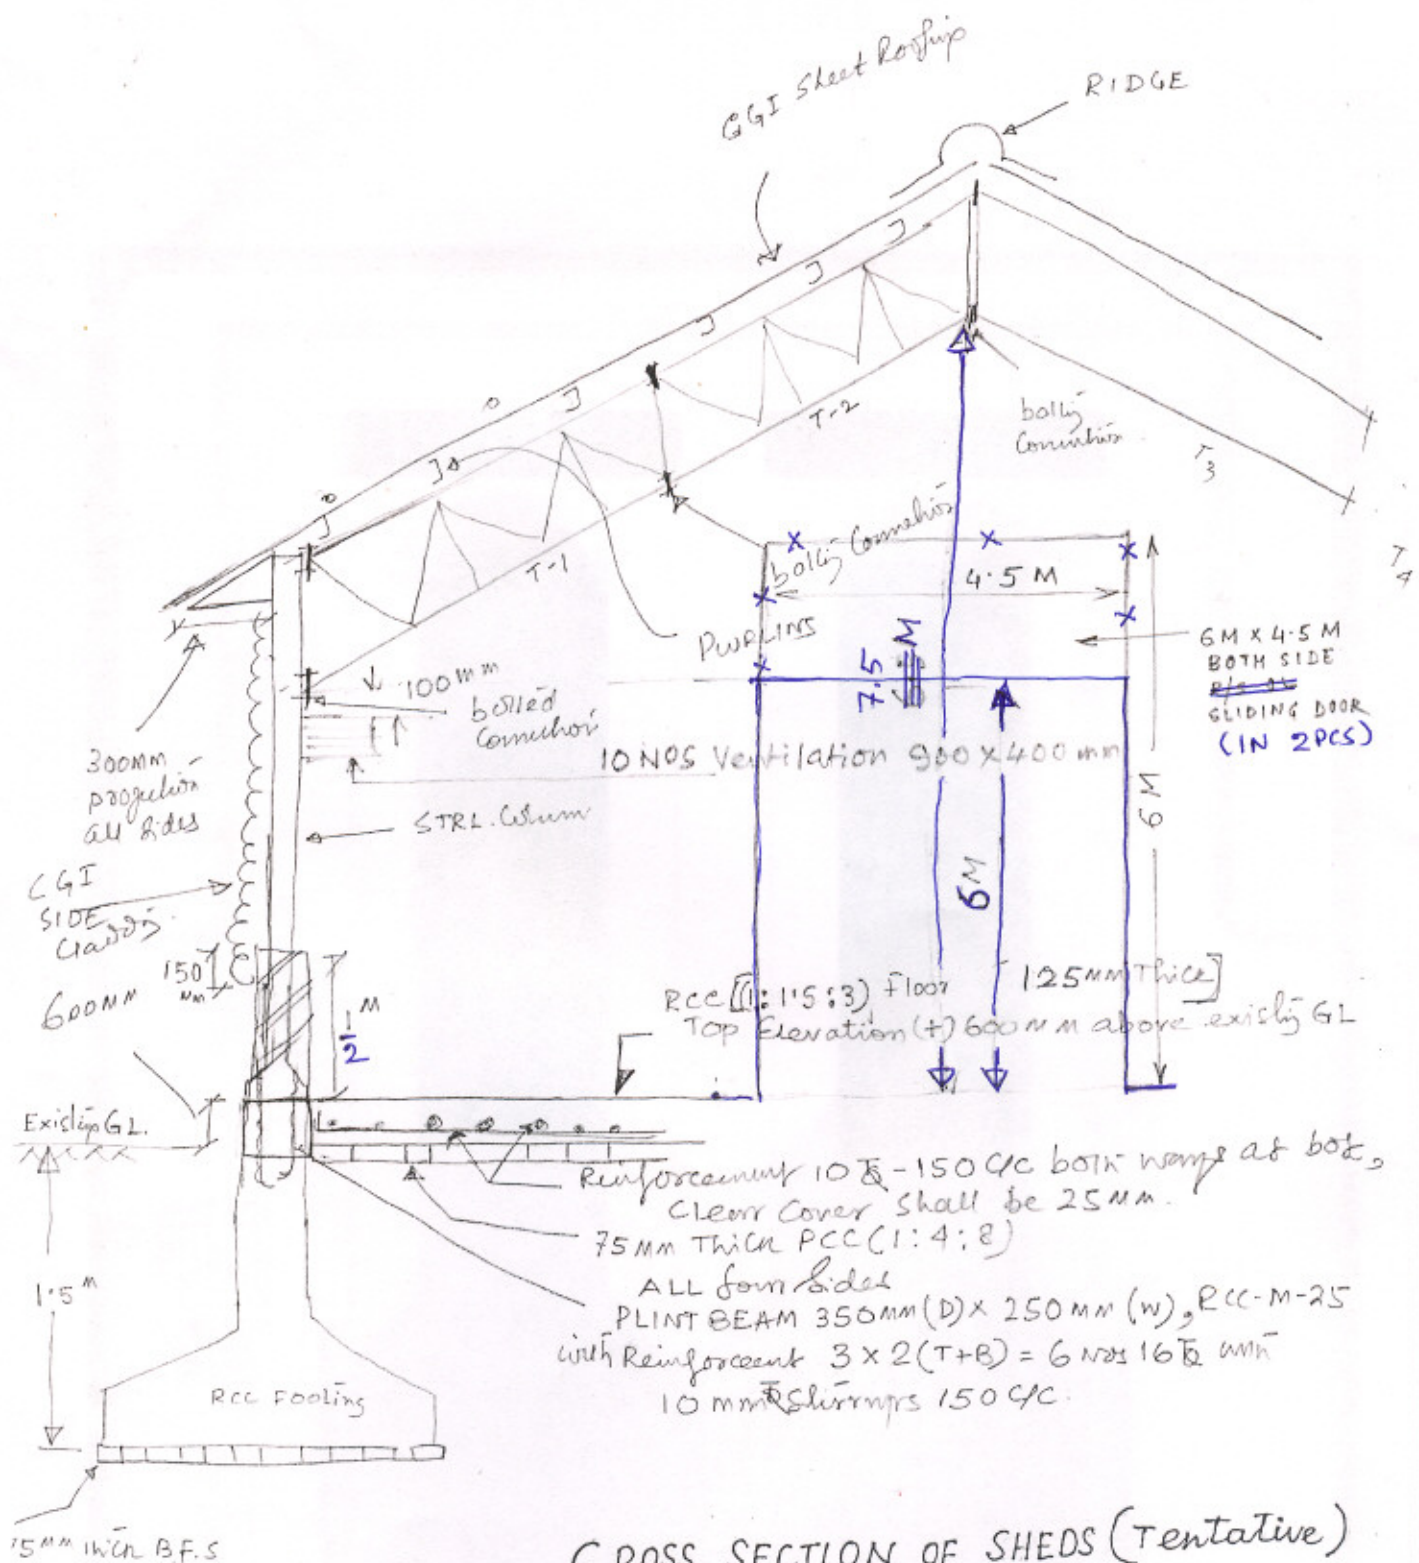 GGI Sheet Roofing
RIDGE
T-2
bolting
Connection
T3
T4
bolting Connection
T-1
4.5 M
PURLINS
7.5 M
6M X 4.5 M
BOTH SIDE
SLIDING DOOR
(IN 2PCS)
100mm
bolted
Connection
10 NOS Ventilation 900 x 400 mm
300mm
projection
all sides
STRL. Column
6 M
6M
CGI
SIDE
Cladding
150
MM
600MM
1/2 M
RCC [(1:1.5:3) Floor 125MM Thick]
Top Elevation (+) 600MM above existing GL
Existing GL.
Reinforcement 10 - 150 C/C both ways at bot,
Clear Cover Shall be 25MM.
75MM Thick PCC (1:4:8)
ALL four sides
PLINT BEAM 350MM(D) X 250MM(W), RCC-M-25
with Reinforcent 3 x 2 (T+B) = 6 Nos 16 with
10 mm Stirrups 150 C/C.
1.5 M
RCC Footing
75MM thick B.F.S
CROSS SECTION OF SHEDS (Tentative)